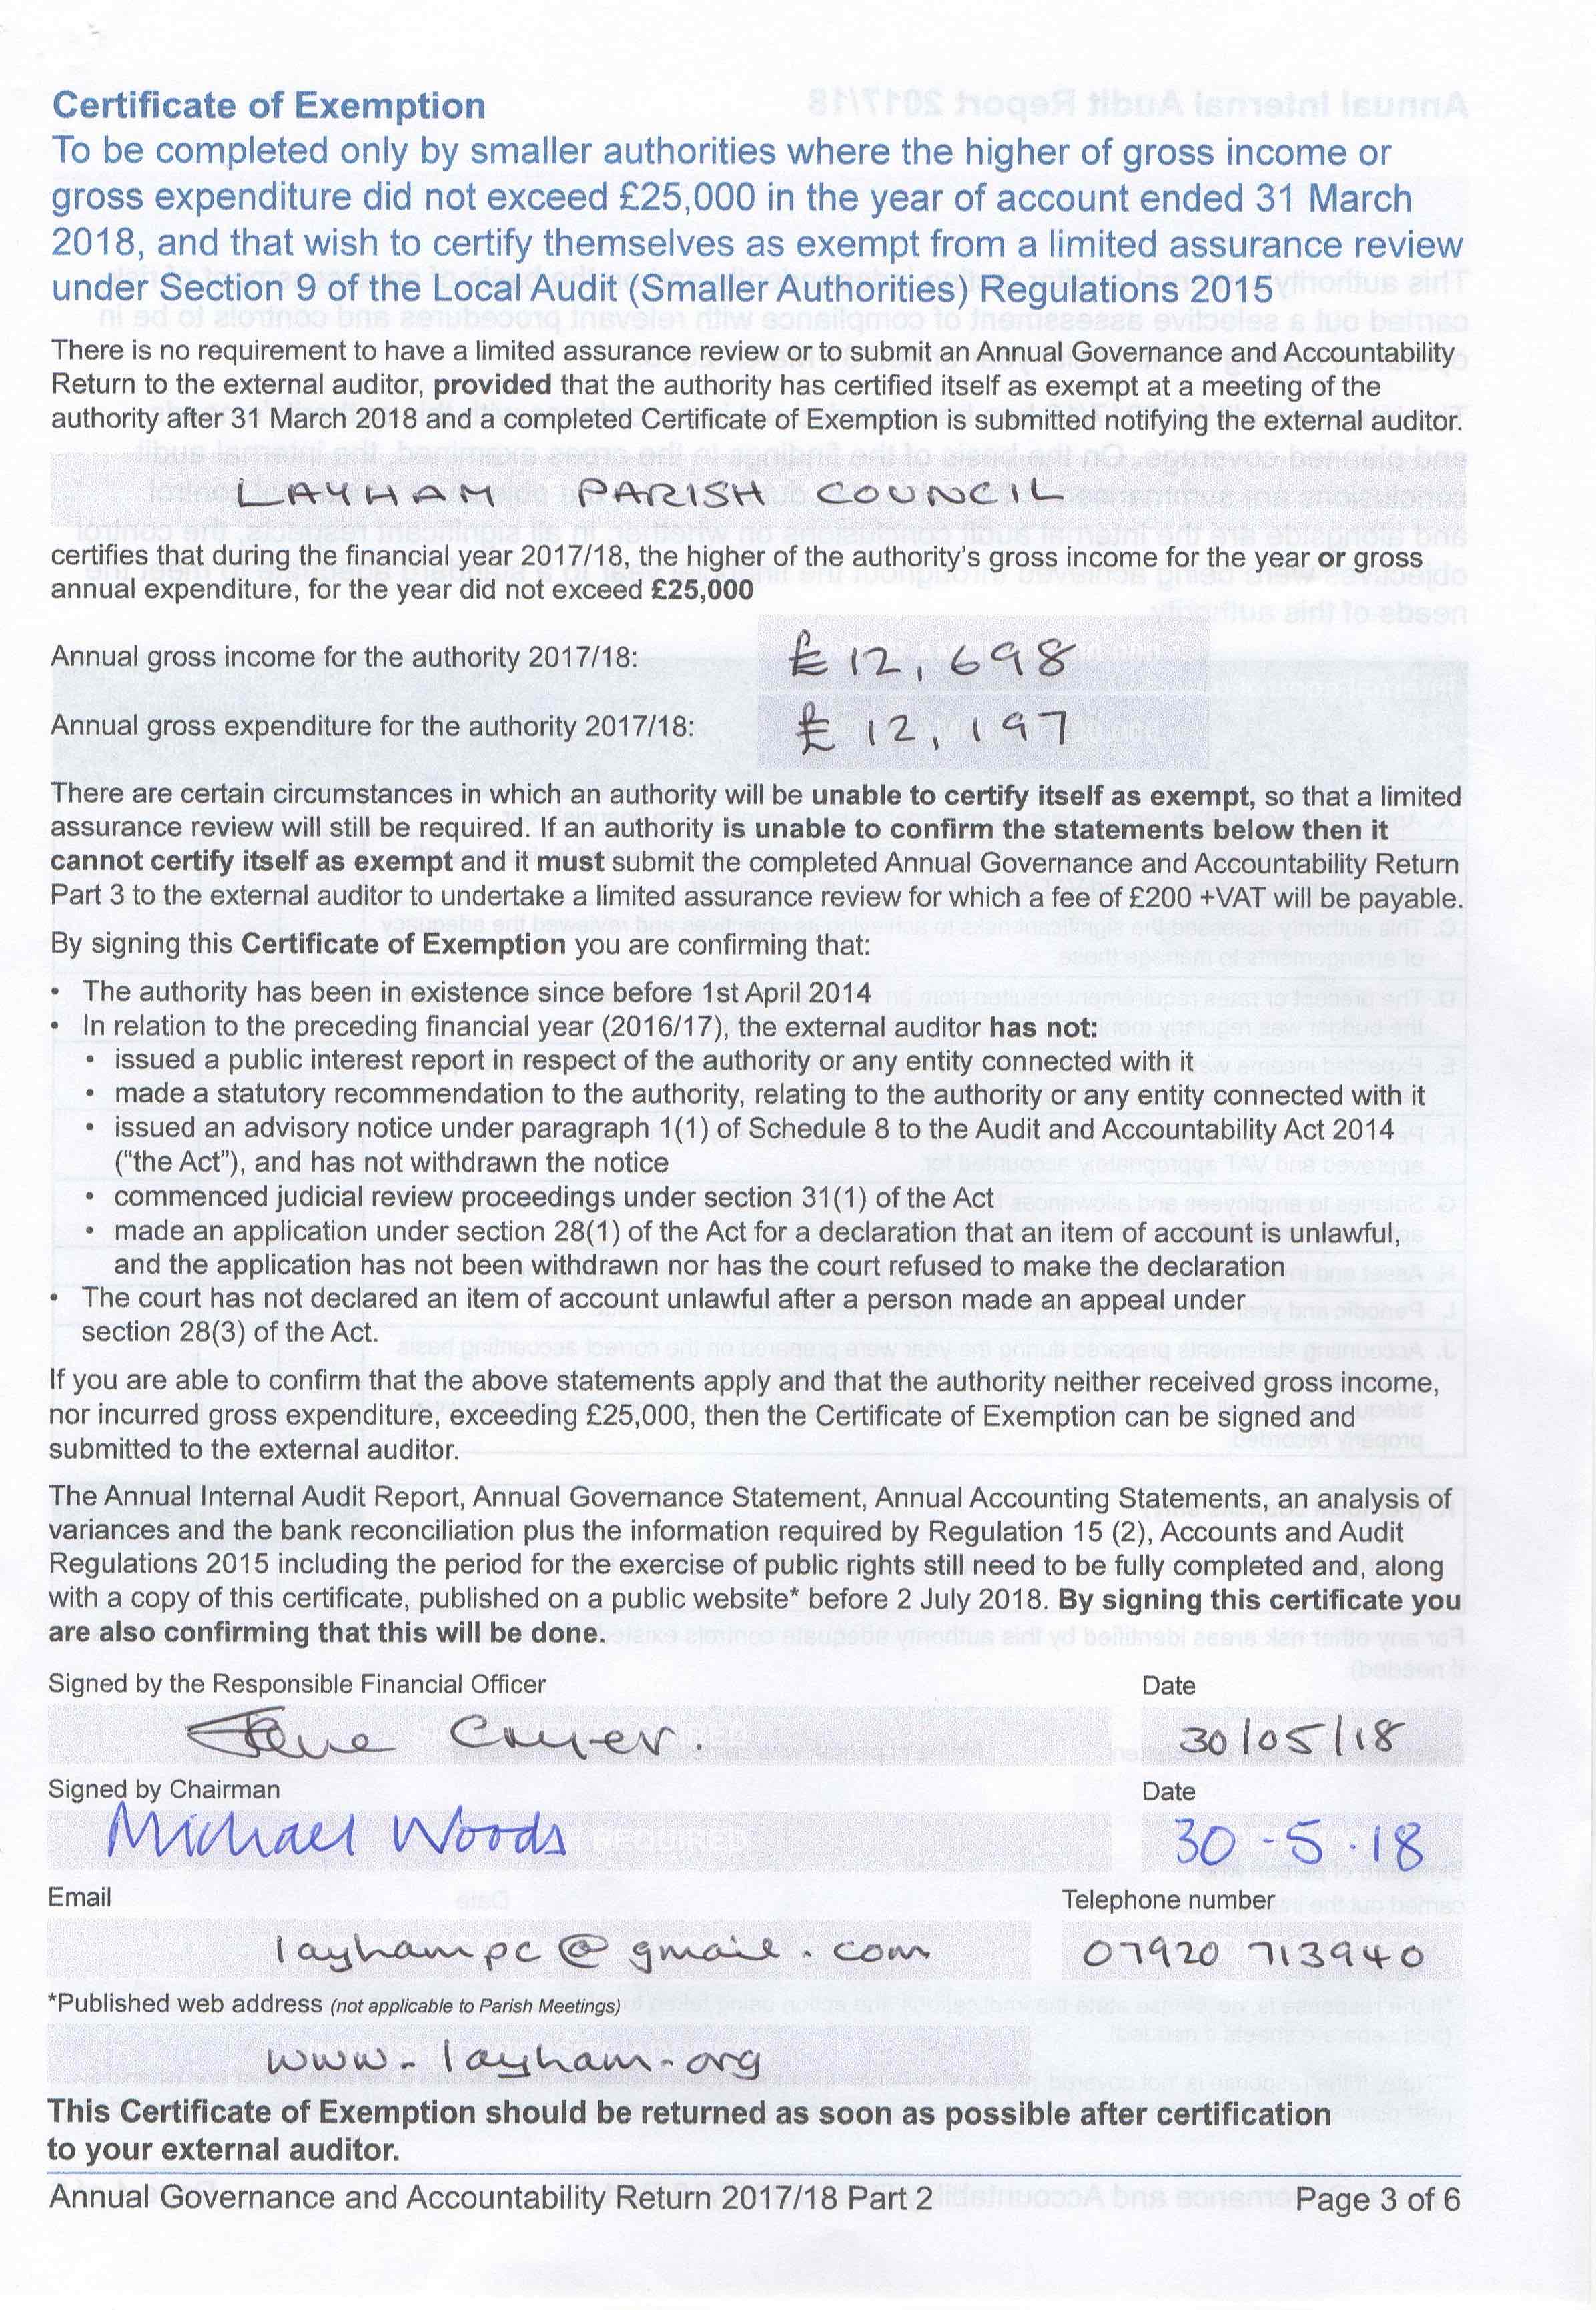 Certificate of Exemption
To be completed only by smaller authorities where the higher of gross income or
gross expenditure did not exceed £25,000 in the year of account ended 31 March
2018, and that wish to certify themselves as exempt from a limited assurance review
under Section 9 of the Local Audit (Smaller Authorities) Regulations 2015
There is no requirement to have a limited assurance review or to submit an Annual Governance and Accountability
Return to the external auditor, provided that the authority has certified itself as exempt at a meeting of the
authority after 31 March 2018 and a completed Certificate of Exemption is submitted notifying the external auditor.
LAYHAM PARISH COUNCIL
certifies that during the financial year 2017/18, the higher of the authority's gross income for the year or gross
annual expenditure, for the year did not exceed £25,000
Annual gross income for the authority 2017/18: £12,698
Annual gross expenditure for the authority 2017/18: £12,197
There are certain circumstances in which an authority will be unable to certify itself as exempt, so that a limited
assurance review will still be required. If an authority is unable to confirm the statements below then it
cannot certify itself as exempt and it must submit the completed Annual Governance and Accountability Return
Part 3 to the external auditor to undertake a limited assurance review for which a fee of £200 +VAT will be payable.
By signing this Certificate of Exemption you are confirming that:
• The authority has been in existence since before 1st April 2014
• In relation to the preceding financial year (2016/17), the external auditor has not:
• issued a public interest report in respect of the authority or any entity connected with it
• made a statutory recommendation to the authority, relating to the authority or any entity connected with it
• issued an advisory notice under paragraph 1(1) of Schedule 8 to the Audit and Accountability Act 2014
("the Act"), and has not withdrawn the notice
• commenced judicial review proceedings under section 31(1) of the Act
• made an application under section 28(1) of the Act for a declaration that an item of account is unlawful,
and the application has not been withdrawn nor has the court refused to make the declaration
• The court has not declared an item of account unlawful after a person made an appeal under
section 28(3) of the Act.
If you are able to confirm that the above statements apply and that the authority neither received gross income,
nor incurred gross expenditure, exceeding £25,000, then the Certificate of Exemption can be signed and
submitted to the external auditor.
The Annual Internal Audit Report, Annual Governance Statement, Annual Accounting Statements, an analysis of
variances and the bank reconciliation plus the information required by Regulation 15 (2), Accounts and Audit
Regulations 2015 including the period for the exercise of public rights still need to be fully completed and, along
with a copy of this certificate, published on a public website* before 2 July 2018. By signing this certificate you
are also confirming that this will be done.
Signed by the Responsible Financial Officer Date
30/05/18
Signed by Chairman Date
Michael Woods 30-5.18
Email Telephone number
layhampc@gmail.com 07920 713940
*Published web address (not applicable to Parish Meetings)
www.layham.org
This Certificate of Exemption should be returned as soon as possible after certification
to your external auditor.
Annual Governance and Accountability Return 2017/18 Part 2 Page 3 of 6